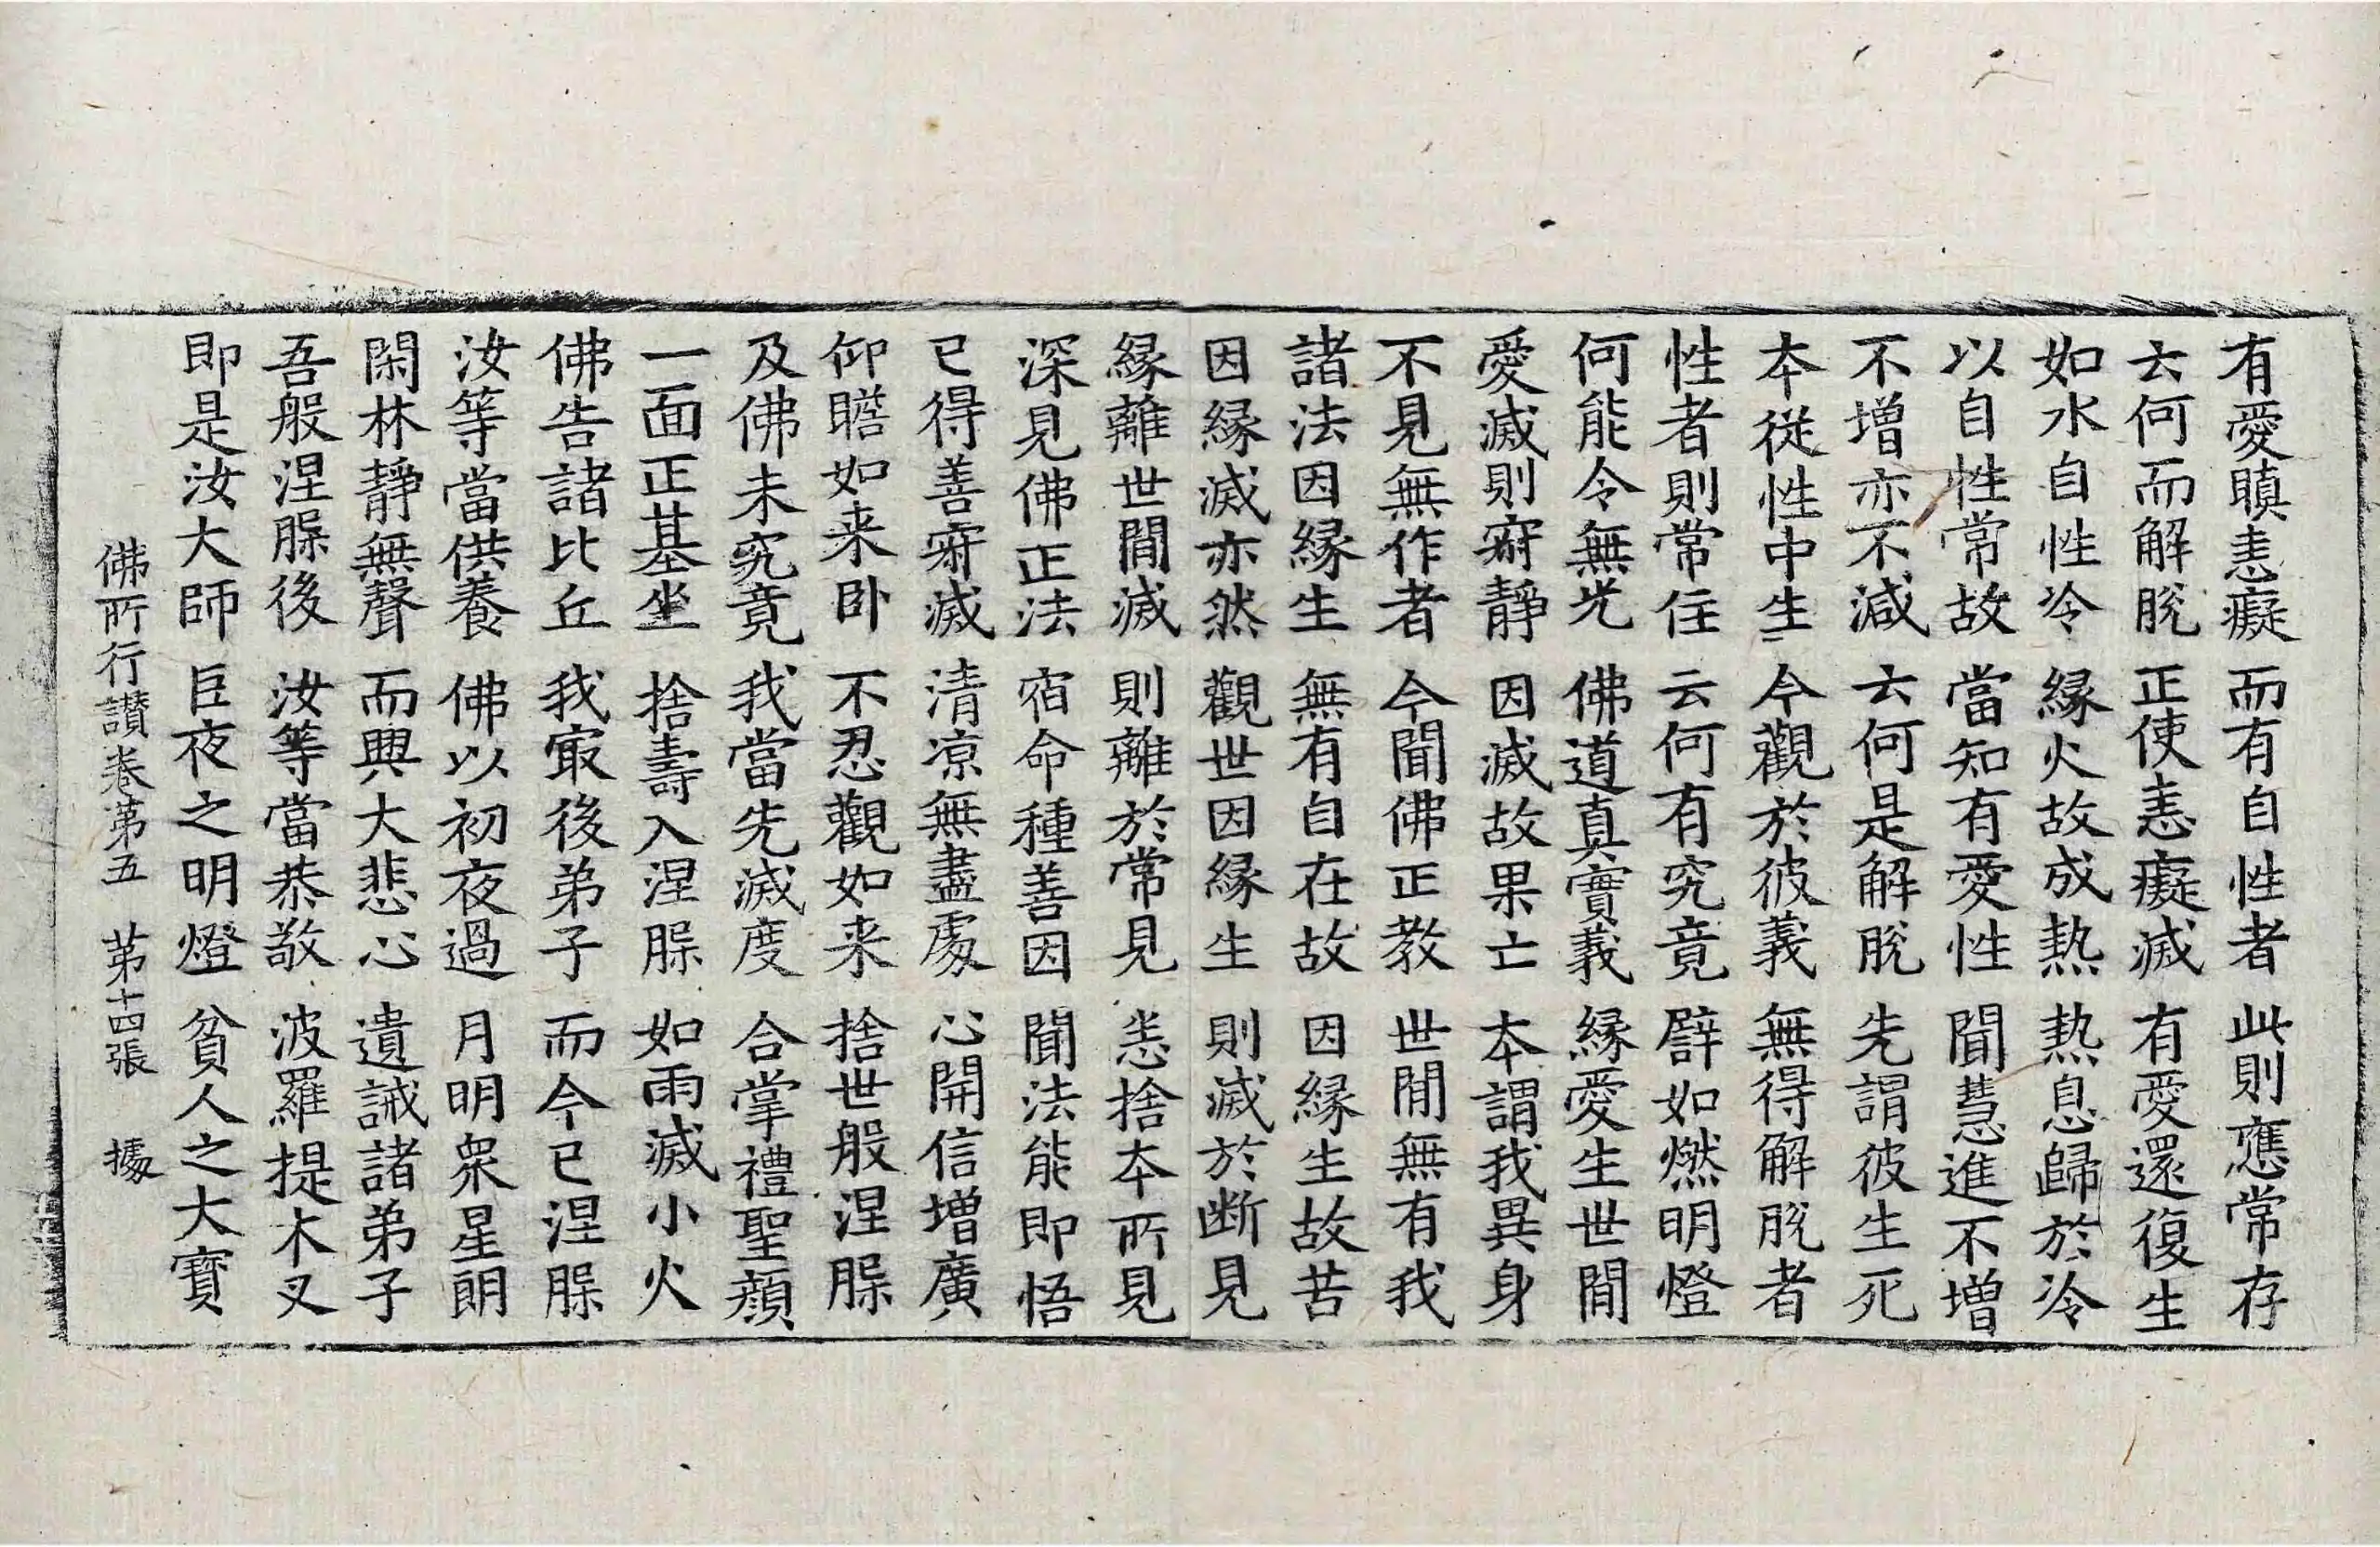 有愛瞋恚癡 而有自性者 此則應常存
云何而解脫 正使恚癡滅 有愛還復生
如水自性冷 緣火故成熱 熱息歸於冷
以自性常故 當知有愛性 聞慧進不增
不增亦不減 云何是解脫 先謂彼生死
本從性中生 今觀於彼義 無得解脫者
性者則常住 云何有究竟 譬如燃明燈
何能令無光 佛道真實義 緣愛生世間
愛滅則寂靜 因滅故果亡 本謂我異身
不見無作者 今聞佛正教 世間無有我
諸法因緣生 無有自在故 因緣生故苦
因緣滅亦然 觀世因緣生 則滅於断見
緣離世間滅 則離於常見 悉捨本所見
深見佛正法 宿命種善因 聞法能即悟
已得善寂滅 清涼無盡處 心開信增廣
仰瞻如来卧 不忍觀如来 捨世般涅槃
及佛未究竟 我當先滅度 合掌禮聖顔
一面正基坐 捨壽入涅槃 如雨滅小火
佛告諸比丘 我最後弟子 而今已涅槃
汝等當供養 佛以初夜過 月明眾星朗
閑林靜無聲 而興大悲心 遺誡諸弟子
吾般涅槃後 汝等當恭敬 波羅提木叉
即是汝大師 巨夜之明燈 貧人之大寶
佛所行讃卷第五 第十四張 據